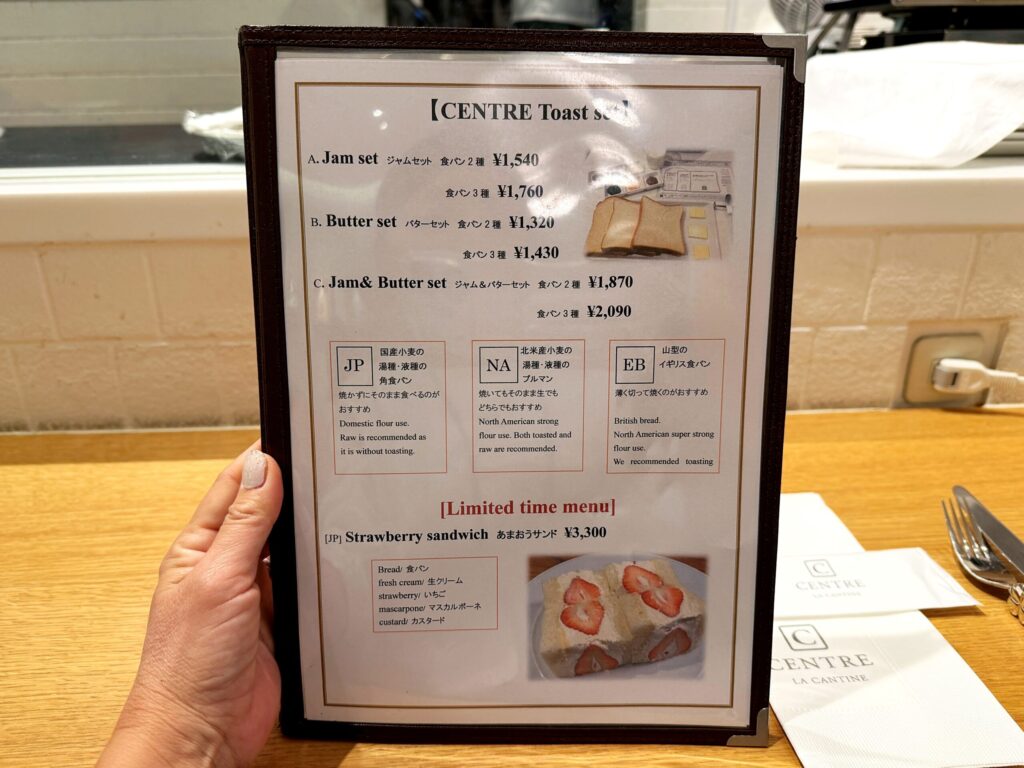 【CENTRE Toast set】
A. Jam set ジャムセット 食パン2種 ¥1,540
食パン3種 ¥1,760
B. Butter set バターセット 食パン2種 ¥1,320
食パン3種 ¥1,430
C. Jam& Butter set ジャム&バターセット 食パン2種 ¥1,870
食パン3種 ¥2,090
JP
国産小麦の
湯種・液種の
角食パン
焼かずにそのまま食べるのが
おすすめ
Domestic flour use.
Raw is recommended as
it is without toasting.
NA
北米産小麦の
湯種・液種の
プルマン
焼いてもそのまま生でも
どちらでもおすすめ
North American strong
flour use. Both toasted and
raw are recommended.
EB
山型の
イギリス食パン
薄く切って焼くのがおすすめ
British bread.
North American super strong
flour use.
We recommended toasting
[Limited time menu]
[JP] Strawberry sandwich あまおうサンド ¥3,300
Bread/ 食パン
fresh cream/ 生クリーム
strawberry/ いちご
mascarpone/ マスカルポーネ
custard/ カスタード
C
CENTRE
LA CANTINE
C
CENTRE
LA CANTINE